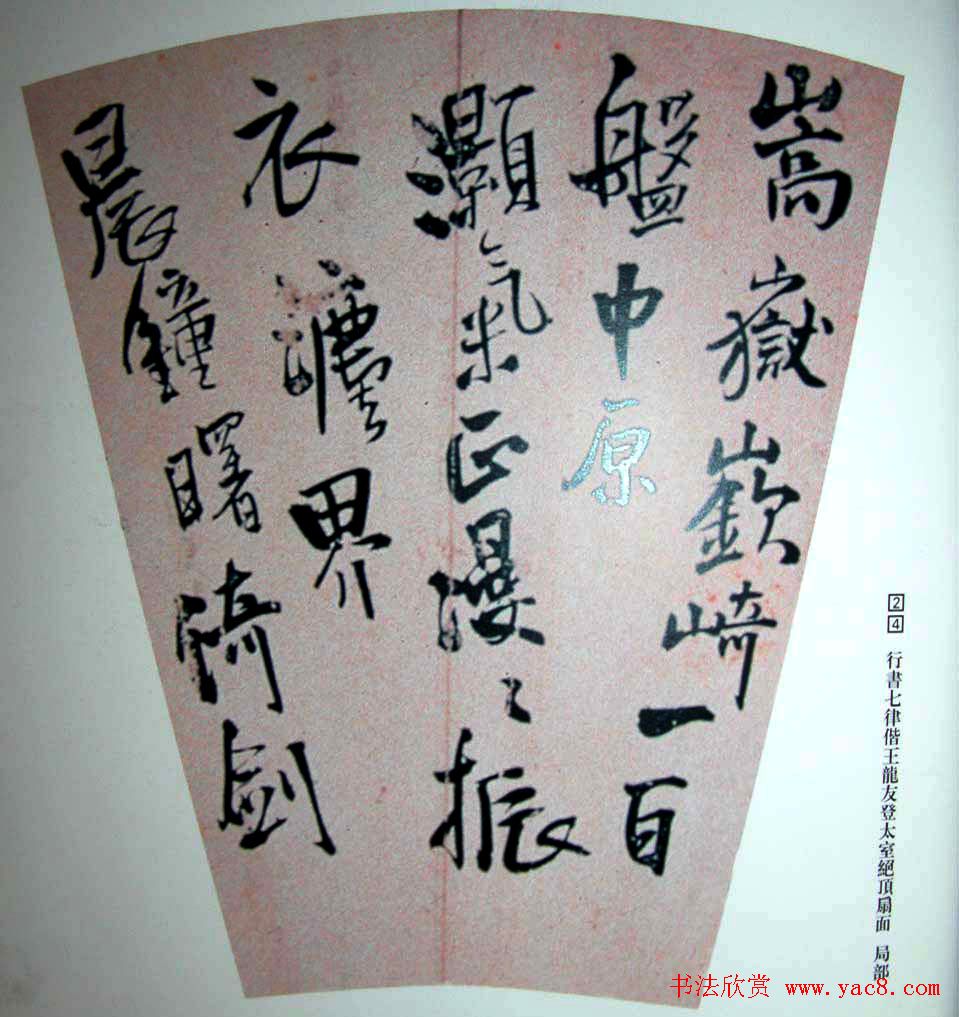 嵩嶽嶔崎一百
盤中原
灝氣正漫〻振
衣濃界
晨鐘曙倚劍
24 行書七律偕王龍友登太室絕頂扇面 局部
书法欣赏 www.yac8.com